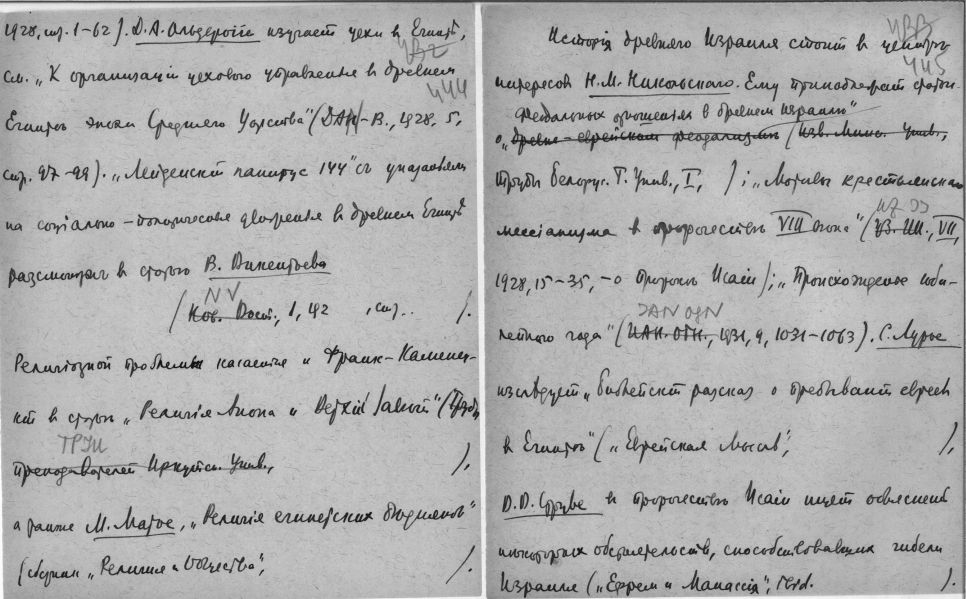 1928, стр. 1-62). Д.А. Ольдерогге изучает цехи в Египте,
432
см. „К организации цехового управления в древнем
444
Египте эпохи Среднего Царства" (ДАН-В., 1928, 5,
стр. 97-99). „Лейденский папирус 144" съ указаниями
на соціально-политическое движение в древнем Египте
рассмотрен в статье В. Викентьева
NV
(Нов. Вост., 1, 192 , стр. ).
Религиозной проблемы касается и Франк-Каменец-
кий в статье „Религия Амона и Ветхий Завет" (Труды
ТРУИ
преподавателей Иркутск. Унив., ).
а также М. Матье, „Религія египетских бедняков"
(сборник „Религия и Общество", ).
433
Исторія древняго Израиля стоит в центре
445
интересов Н.М. Никольскаго. Ему принадлежат статьи
феодальных отношениях в древнем Израиле"
о „древне-еврейском феодализме (Изв. Минс. Унив.,
Труды Белорус. Г. Унив., I, ) ; „Мотивы крестьянскаго
мессіанизма в пророчествах VIII века" ( , VII,
1928, 15-35, - о пророке Исаіи) ; „Происхождение юби-
JAN OGN
лейного года" (ИАН. ОГН., 1931, 9, 1031-1063). С. Лурье
изследует „библейскій разсказ о пребываніи евреев
в Египте" („Еврейская Мысль", ),
В.В. Струве в пророчествах Исаіи ищет объяснений
некоторых обстоятельств, способствовавших гибели
Израиля („Ефрем и Манассія", ibid. ).